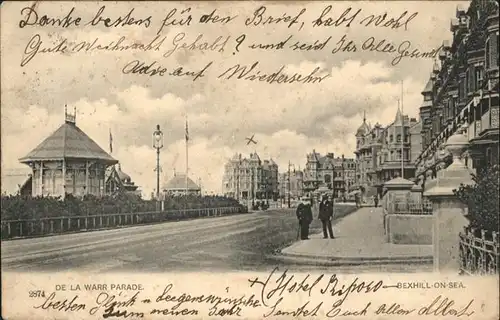 Danke bestens für den Brief, habt Wohl
Gute Weihnacht Gehabt? und seid Ihr Alle Gesund
Adie auf Wiedersehn
2874 DE LA WARR PARADE. × Hotel Riposo BEXHILL-ON-SEA.
besten Dank & Seegenswünsche
zum neuen Jahr Sendet Euch Allen Albert